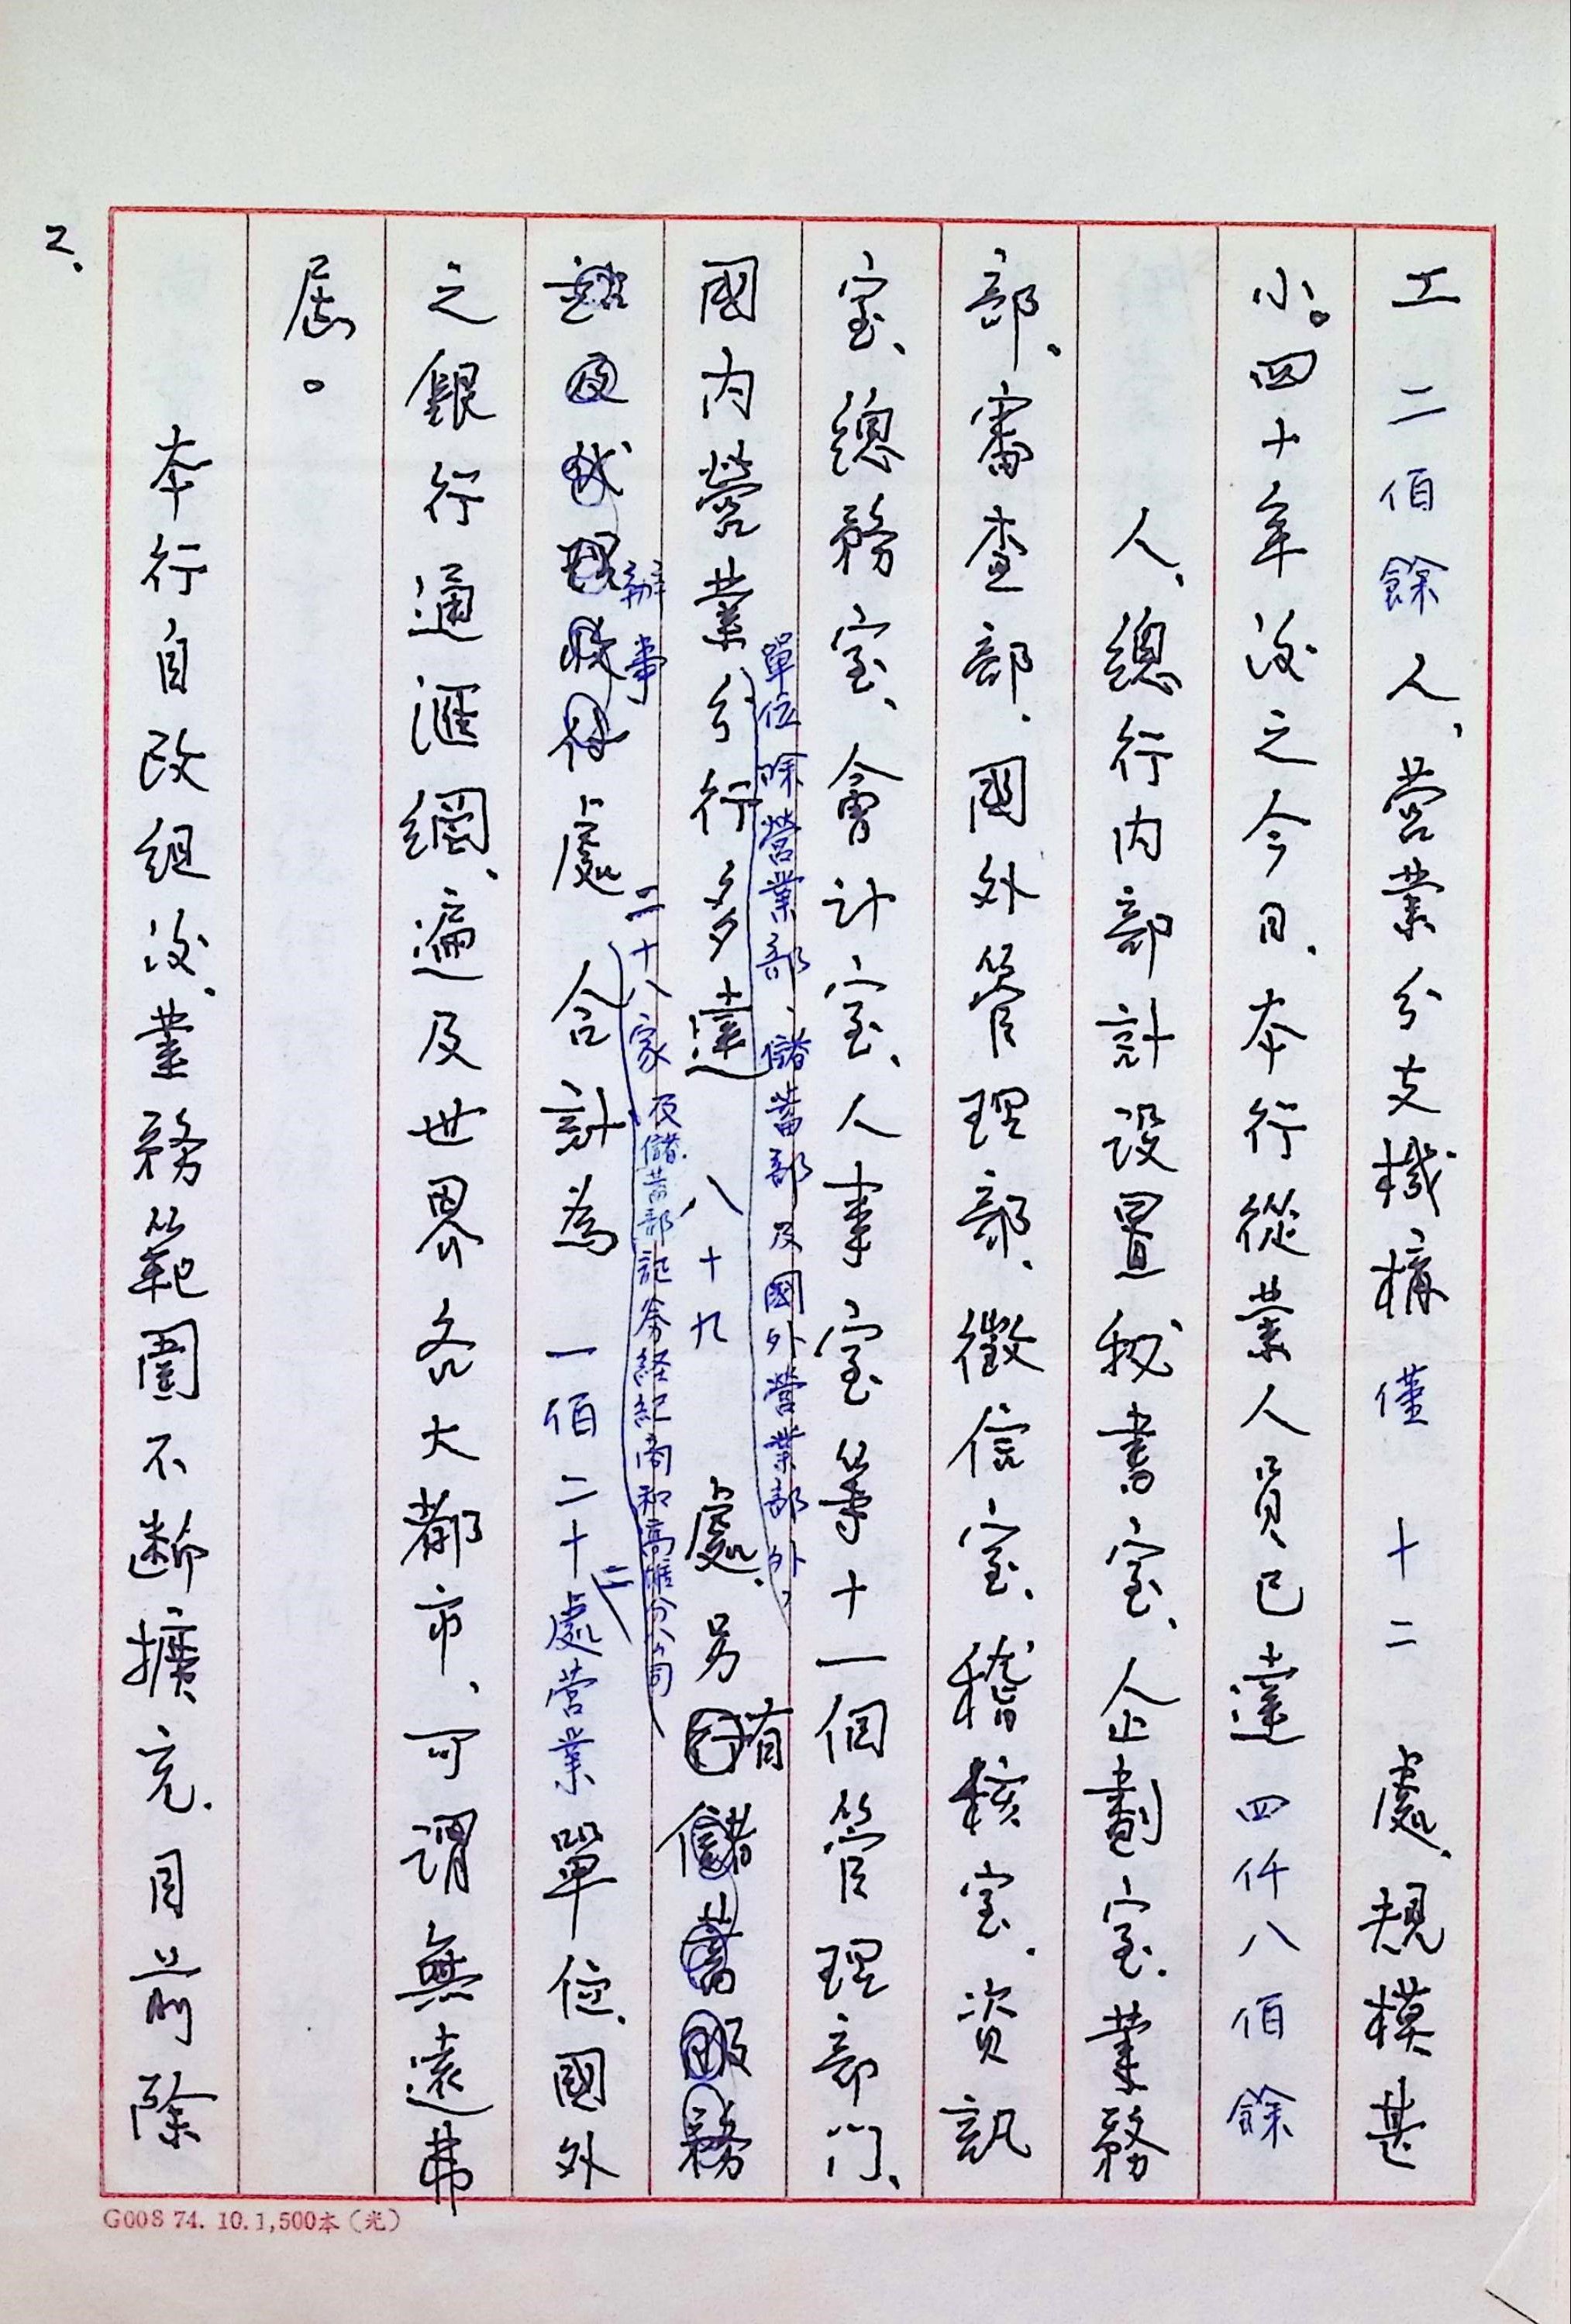 工二佰餘人、營業分支機構僅十二處、規模甚
小。四十年後之今日、本行從業人員已達四仟八佰餘
人、總行內部計設置秘書室、企劃室、業務
部、審查部、國外管理部、徵信室、稽核室、資訊
室、總務室、會計室、人事室等十一個管理部門、
單位除營業部、儲蓄部及國外營業部外,
國內營業分行多達八十九處、另有儲蓄服務
辦事二十八家及儲蓄部証券経記商和高雄分公司
處合計為一佰二十二處營業單位、國外
之銀行通滙網、遍及世界各大都市、可謂無遠弗
屆。
本行自改組後、業務範圍不斷擴充、目前除
2.
G008 74. 10. 1,500本(光)